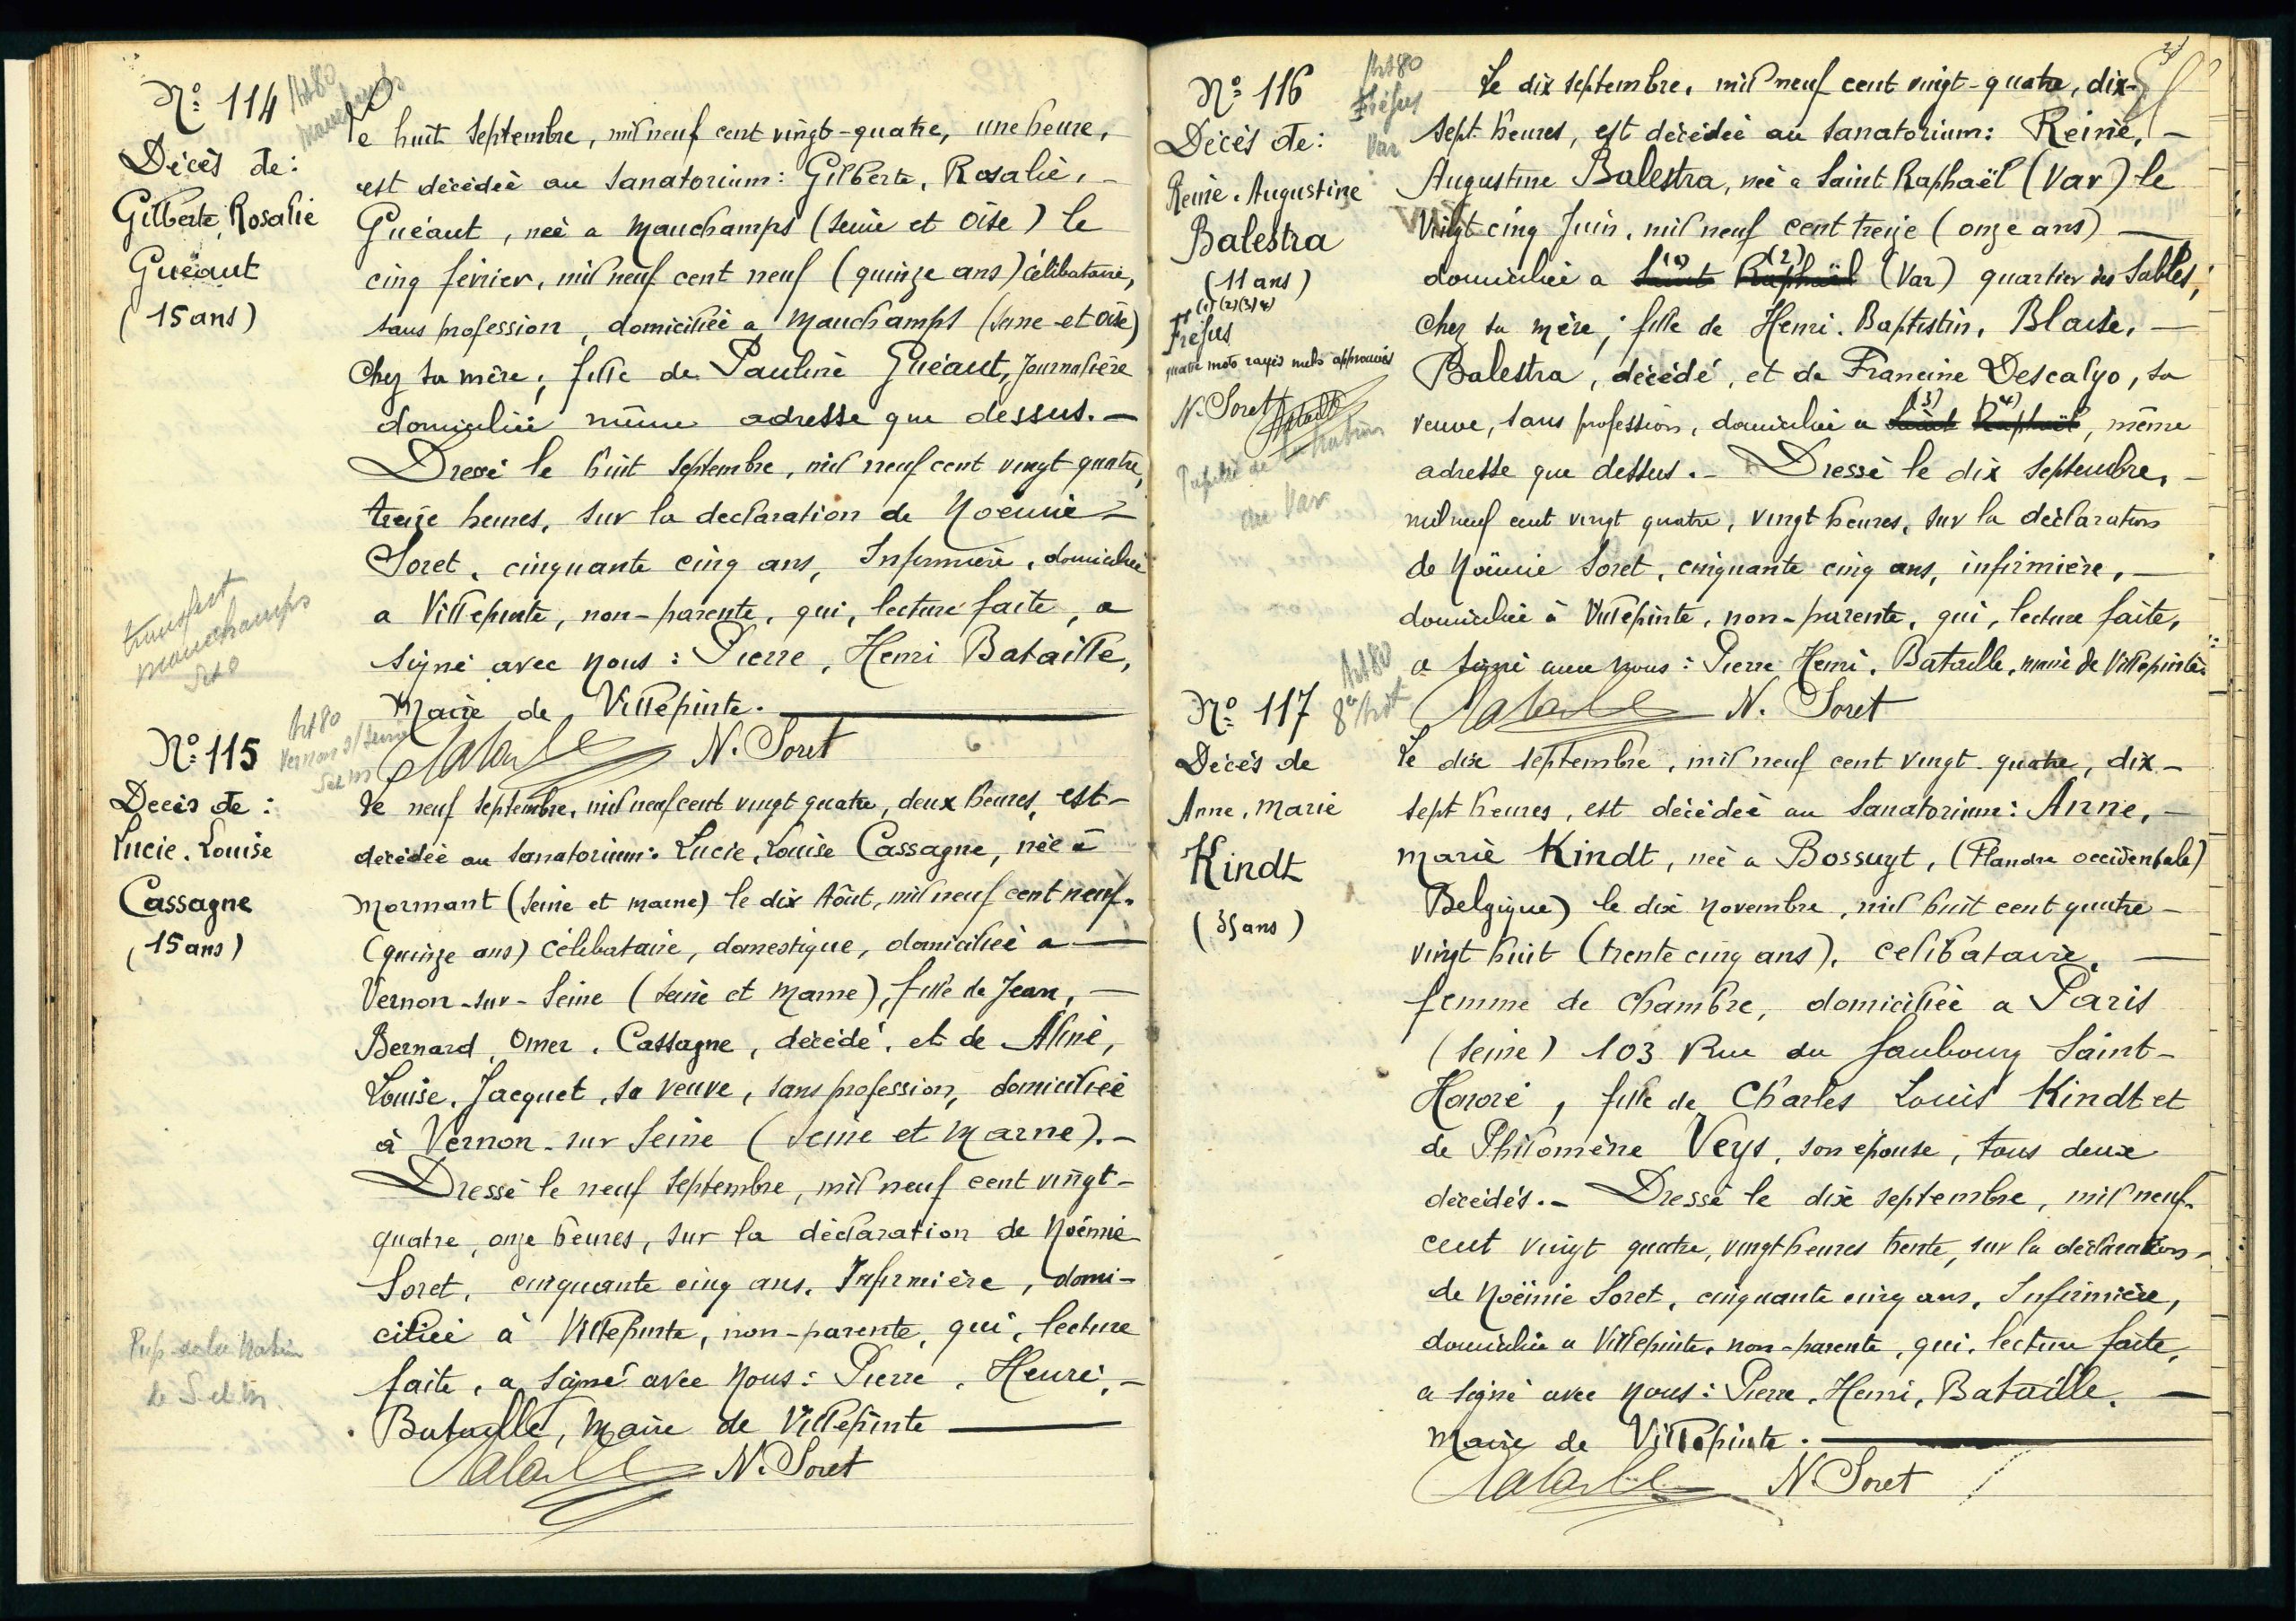 N° 114
Art 80
Décès de :
Gilberte, Rosalie
Guéant
(15 ans)
Le huit Septembre, mil neuf cent vingt-quatre, une heure,
est décédée au Sanatorium : Gilberte, Rosalie, -
Guéant, née a Mauchamps (Seine et Oise) le
cinq février, mil neuf cent neuf (quinze ans) célibataire,
sans profession, domiciliée a Mauchamps (Seine et Oise)
chez sa mère ; fille de Pauline Guéant, Journalière
domiciliée même adresse que dessus. -
Dressé le huit Septembre, mil neuf cent vingt quatre,
treize heures, sur la declaration de Noëmie -
Soret, cinquante cinq ans, Infirmière, domiciliée
a Villepinte, non-parente, qui, lecture faite, a
signé avec Nous : Pierre, Henri Bataille,
Maire de Villepinte.
Bataille N. Soret
transfert
Mauchamps
S et O
N° 115
Art 80
Vernon s/ Seine
S et M
Decès de :
Lucie, Louise
Cassagne
(15 ans)
Le neuf Septembre, mil neuf cent vingt quatre, deux heures, est -
décédée au Sanatorium : Lucie, Louise Cassagne, née à
Mormant (Seine et Marne) le dix Août, mil neuf cent neuf.
(quinze ans) célibataire, domestique, domiciliée a -
Vernon-sur-Seine (Seine et Marne), fille de Jean, -
Bernard, Omer, Cassagne, décédé, et de Aline,
Louise, Jacquet, sa veuve, sans profession, domiciliée
à Vernon-sur Seine (Seine et Marne). -
Dressé le neuf Septembre, mil neuf cent vingt-
quatre, onze heures, sur la déclaration de Noëmie
Soret, cinquante cinq ans, Infirmière, domi-
ciliée à Villepinte, non-parente, qui, lecture
faite, a signé avec Nous : Pierre, Henri, -
Bataille, Maire de Villepinte
Bataille N. Soret
Pup de la Nation
de S et M.
N° 116
Art 80
Fréjus
Var
Décès de :
Reine, Augustine
Balestra
(11 ans)
(1) (2) (3) (4)
Fréjus
quatre mots rayés nuls approuvés
N. Soret Bataille
Pupille de la Nation
du Var
Le dix Septembre, mil neuf cent vingt-quatre, dix-
sept heures, est décédée au Sanatorium : Reine, -
Augustine Balestra, née a Saint Raphaël (Var) le
Vingt cinq Juin, mil neuf cent treize (onze ans)
domiciliée a Saint (1) Raphaël (2) (Var) quartier des Sables,
chez sa mère ; fille de Henri, Baptistin, Blaise, -
Balestra, décédé, et de Francine Descalgo, sa
veuve, sans profession, domiciliée a Saint (3) Raphaël (4), même
adresse que dessus. - Dressé le dix Septembre, -
mil neuf cent vingt quatre, vingt heures, sur la déclaration
de Noëmie Soret, cinquante cinq ans, infirmière, -
domiciliée à Villepinte, non-parente, qui, lecture faite,
a signé avec Nous : Pierre Henri, Bataille, maire de Villepinte.
Bataille N. Soret
N° 117
Art 80
8e Arrt
Décès de
Anne, Marie
Kindt
(35 ans)
Le dix Septembre, mil neuf cent vingt-quatre, dix-
sept heures, est décédée au Sanatorium : Anne, -
Marie Kindt, née a Bossuyt, (Flandre occidentale)
Belgique) le dix Novembre, mil huit cent quatre-
vingt huit (trente cinq ans), celibataire,
femme de chambre, domiciliée a Paris
(Seine) 103 Rue du faubourg Saint-
Honoré, fille de Charles Louis Kindt et
de Philomène Veys, son épouse, tous deux
décédés. - Dressé le dix Septembre, mil neuf-
cent vingt quatre, vingt heures trente, sur la déclaration -
de Noëmie Soret, cinquante cinq ans, Infirmière,
domiciliée a Villepinte, non-parente, qui, lecture faite,
a signé avec Nous : Pierre, Henri, Bataille,
Maire de Villepinte.
Bataille N. Soret